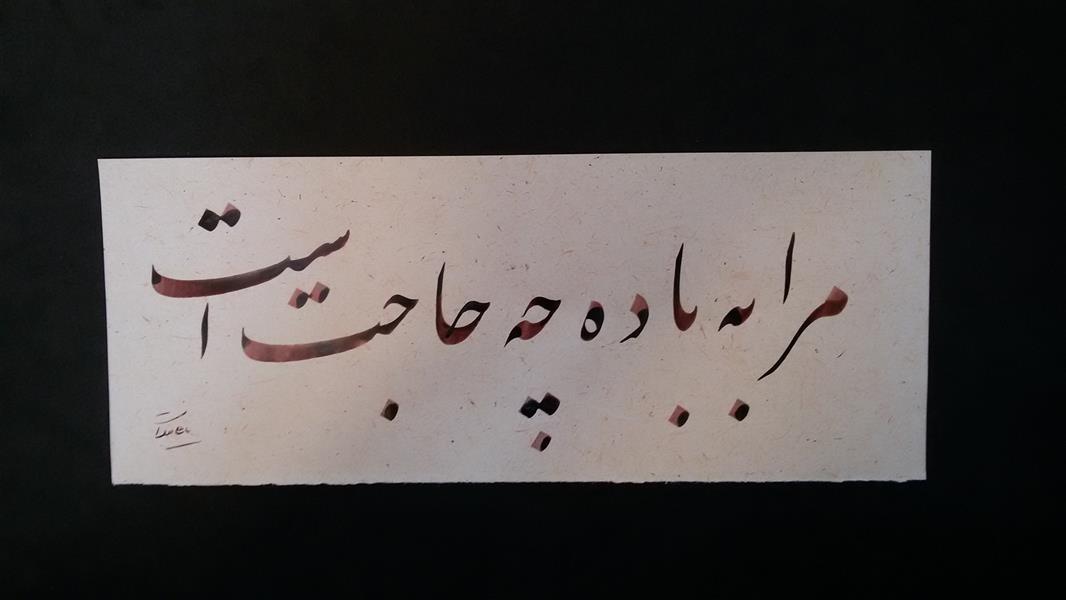 مرا به باده چه حاجت است